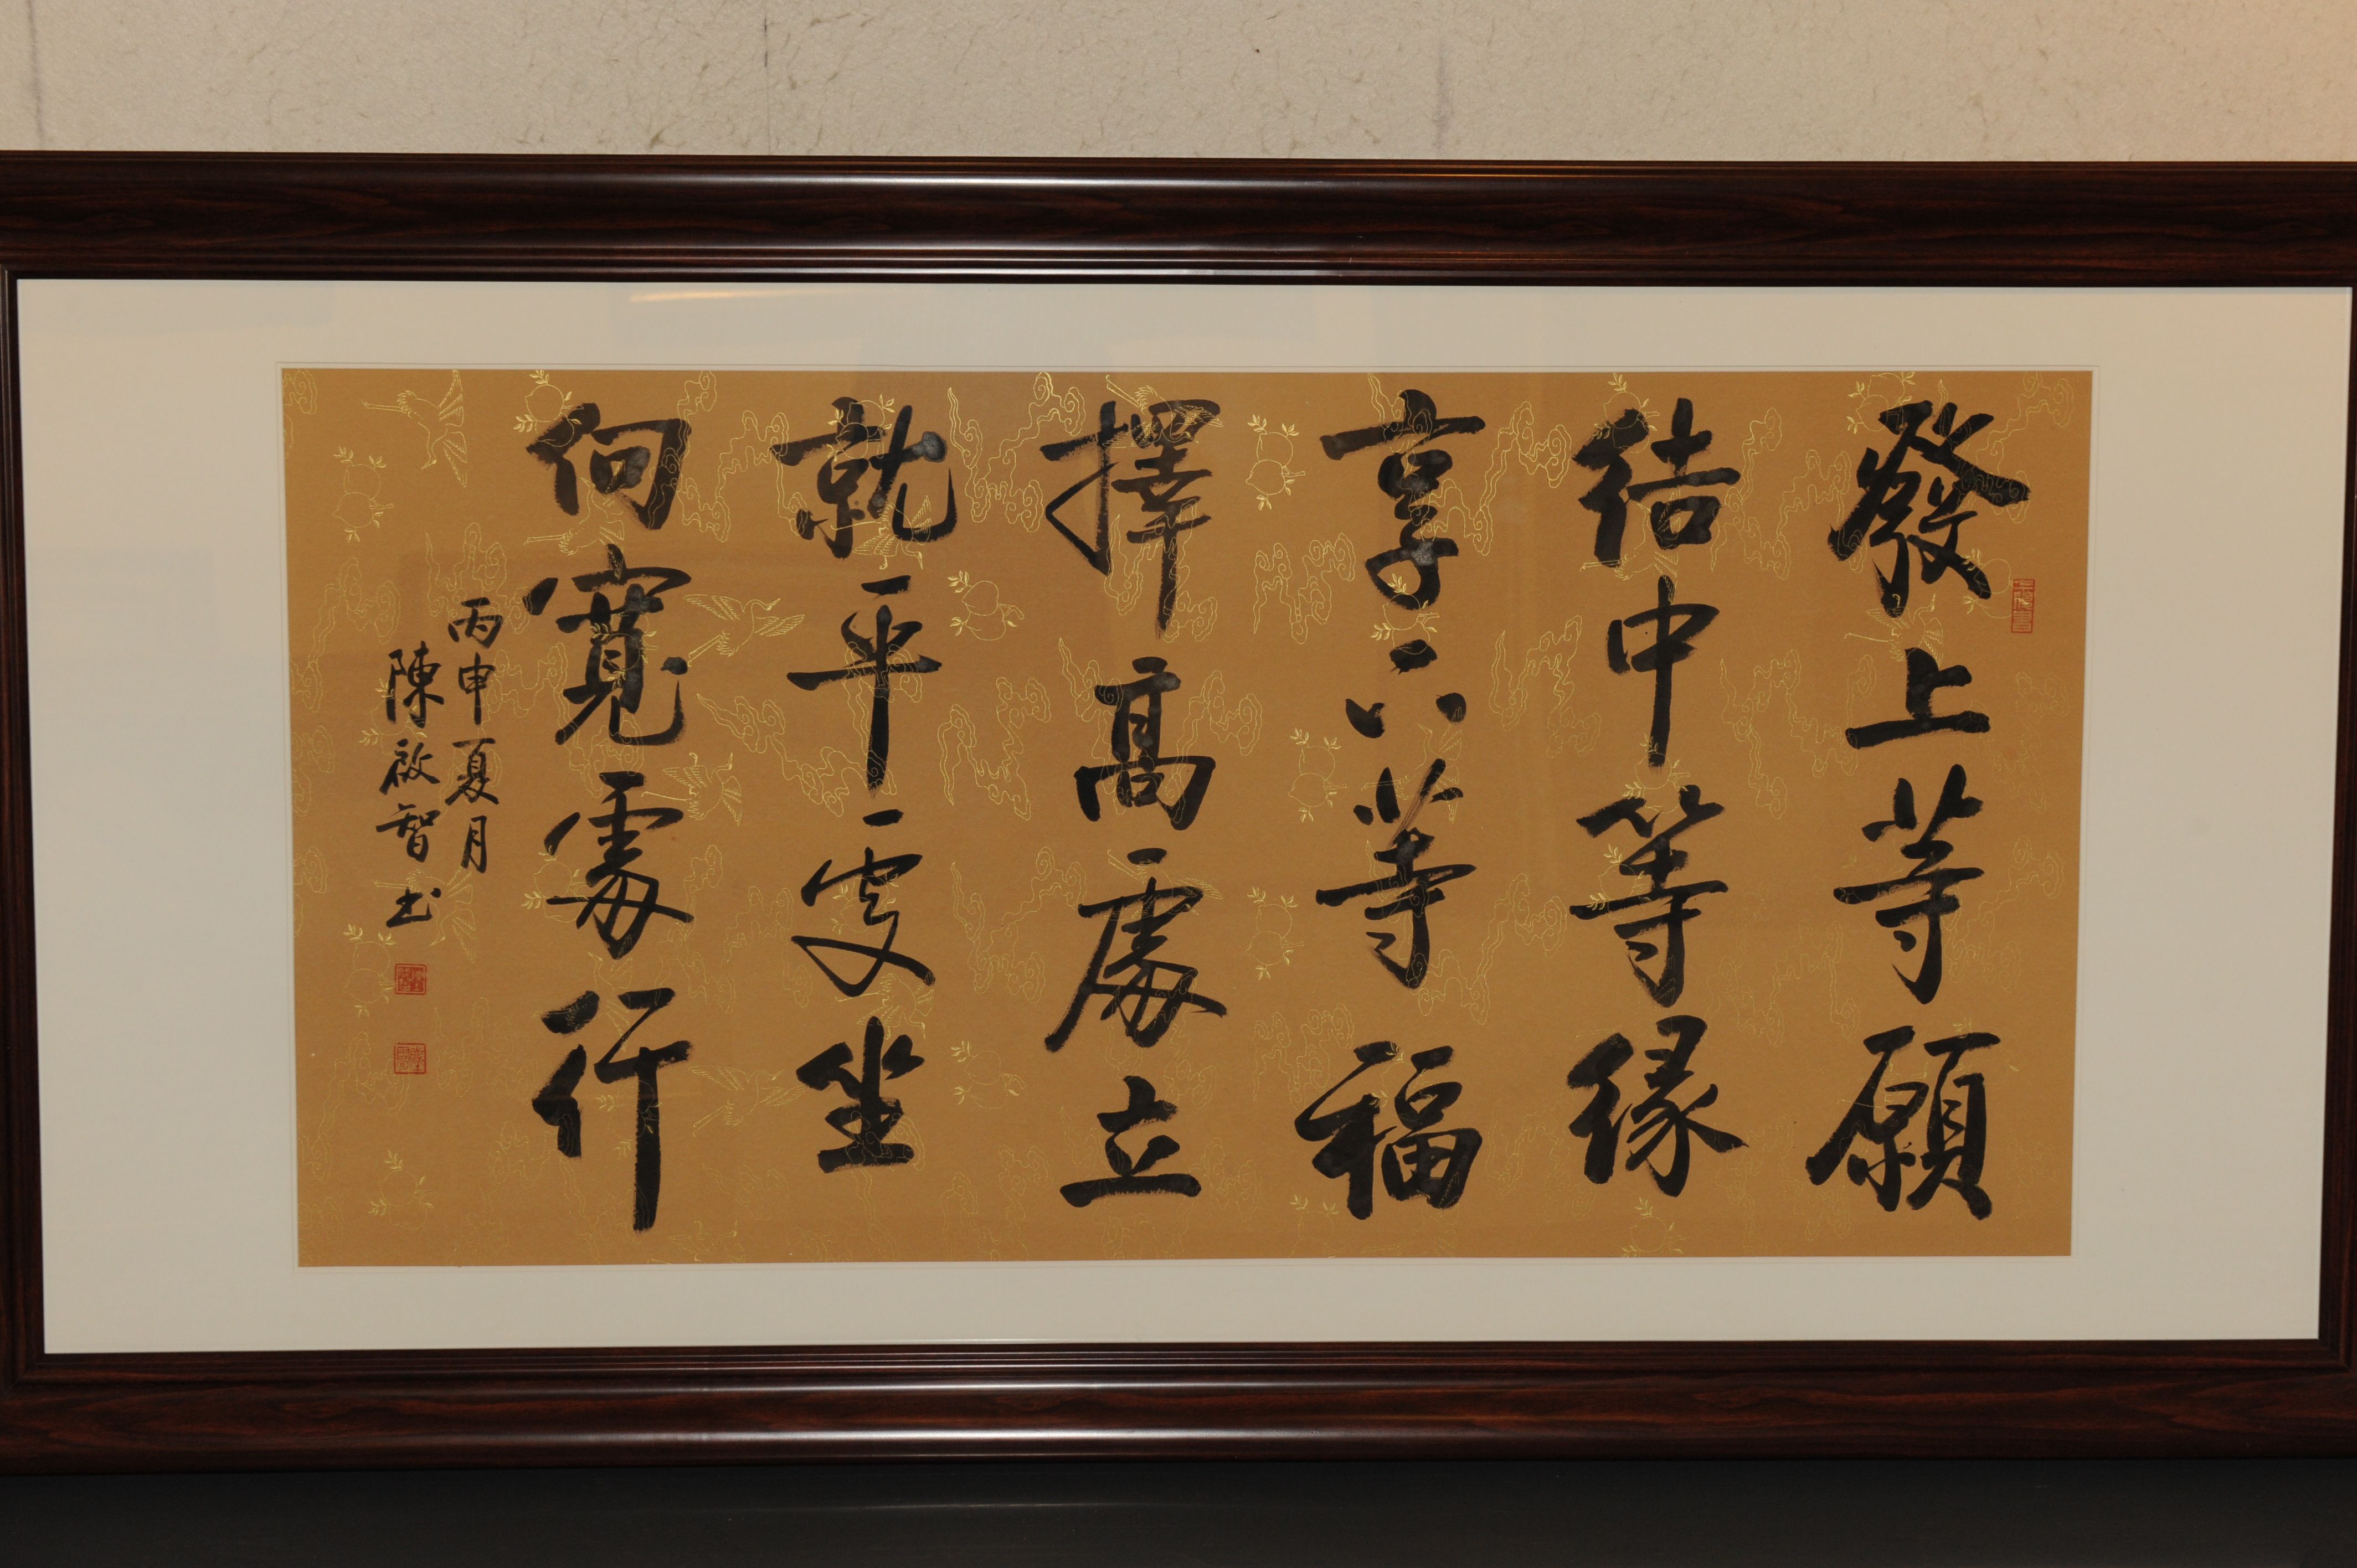 發上等願
結中等緣
享下等福
擇高處立
就平處坐
向寬處行
丙申夏月
陳啟智书